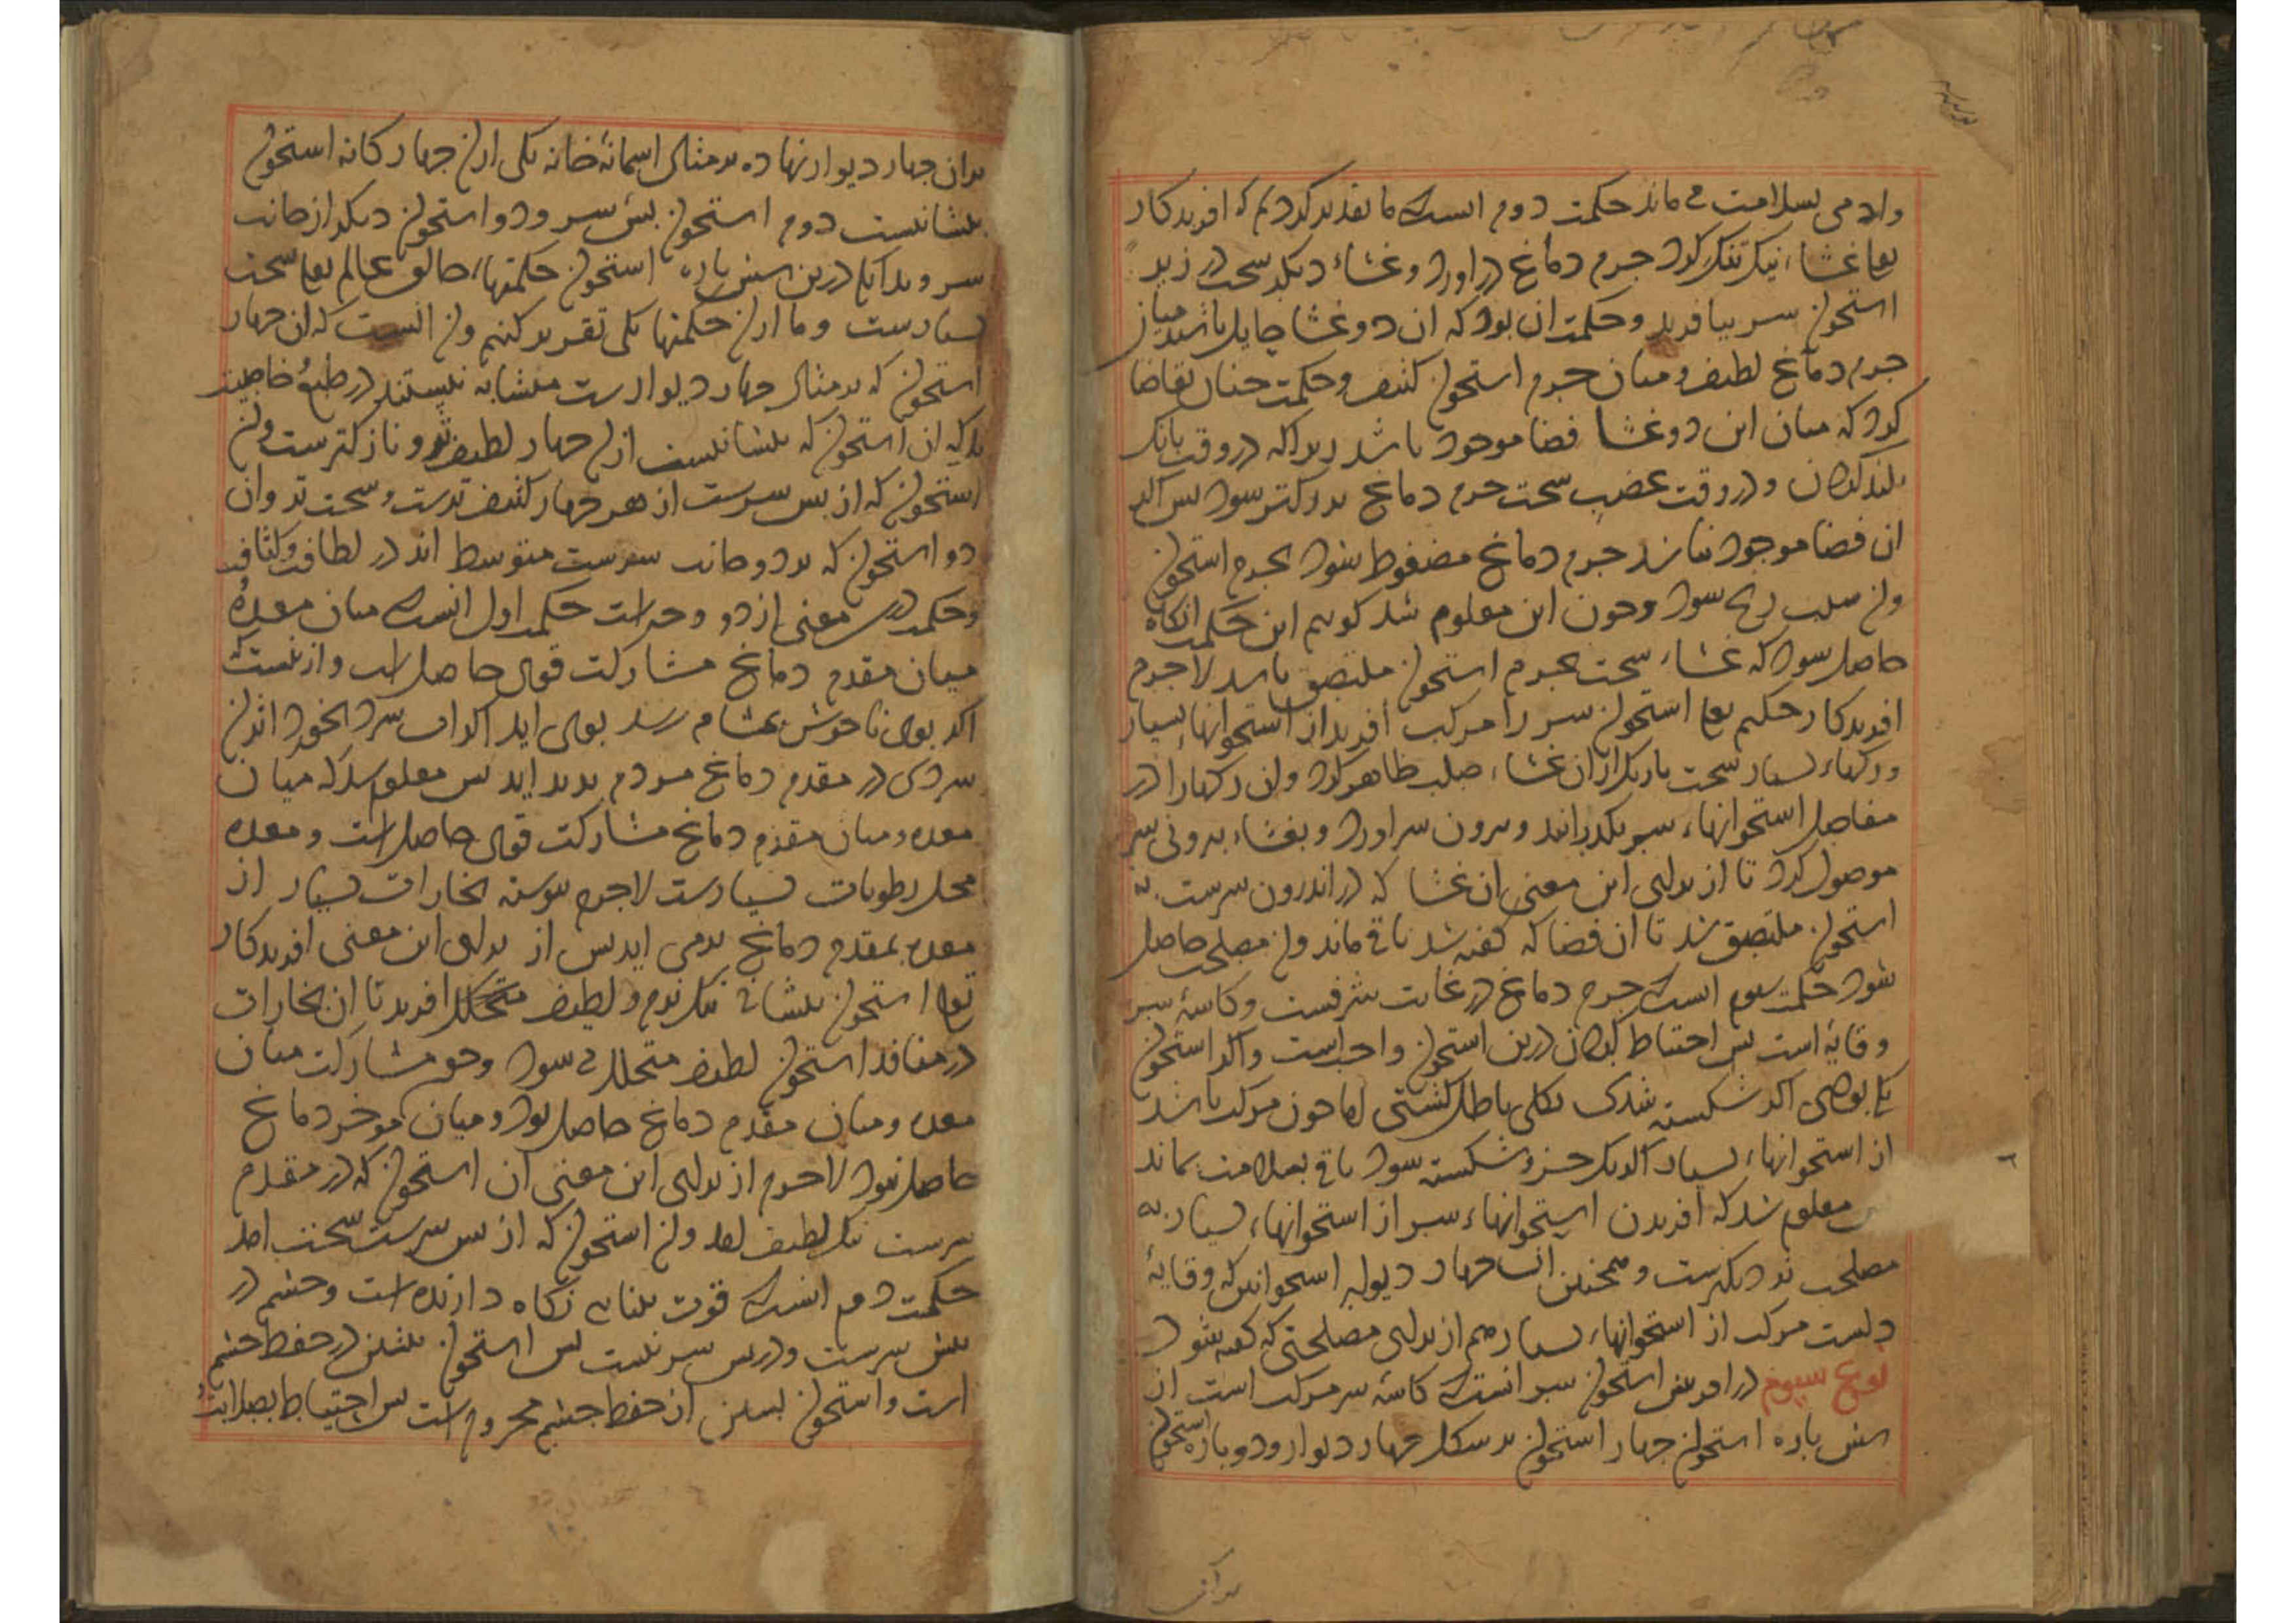 وادمی بسلامت می ماند حکمت دوم انست که ما تقدیر کردیم که افریدکار
تعا غشاء نیک تنک کرد جرم دماغ دراورد و غشاء دیکر سخت در زیر
استخوان سر بیافرید و حکمت ان بود که ان دو غشا حایل باشند میان
جرم دماغ لطیف و میان جرم استخوان کثیف و حکمت جنان تقاضا
کرد که میان این دو غشا فضا موجود باشد زیراکه در وقت بانک
بلند کردن و در وقت غضب سخت جرم دماغ بزرکتر شود بس اکر
ان فضا موجود نباشد جرم دماغ مضغوط شود بجرم استخوان
وان سبب رنج شود وجون این معلوم شد کوییم این حکمت انکاه
حاصل شود که غشاء سخت بجرم استخوان ملتصق باشد لاجرم
افریدکار حکیم تعا استخوان سر را مرکب افرید از استخوانهاء بسیار
ورکهاء بسیار سخت باریک ازان غشاء صلب ظاهر کرد وان رکها را در
مفاصل استخوانهاء سر بکذرانید و برون سر اورد و بغشاء برونی سر
موصول کرد تا از برای این معنی ان غشا که در اندرون سرست به
استخوان ملتصق شد تا ان فضا که کفته شد باقی ماند وان مصلحت حاصل
شود حکمت سوم انست که جرم دماغ در غایت شرفست و کاسۀ سر
وقایۀ است بس احتیاط کردن درین استخوان واجب است واکر استخوان
یکی بودی اکر شکسته شدی بکلی باطل کشتی اما جون مرکب باشد
از استخوانهاء بسیار اکر یک جزو شکسته شود باقی بسلامت بماند
بس معلوم شد که افریدن استخوانهاء سر از استخوانهاء بسیار به
مصلحت نزدیکترست و همجنین ان جهار دیوار استخوانین که وقایۀ
دلست مرکب از استخوانهاء بسیار هم از برای مصلحتی که کفته شود
نوع سیوم در افرینش استخوان سر انست که کاسۀ سر مرکب است از
شش باره استخوان جهار استخوان بر شکل جهار دیوار و دو باره استخوان
بران
بران جهار دیوار نهاده بر مثال اسمانۀ خانه یکی ازان جهار کانه استخوان
بیشانیست دوم استخوان بس سر و دو استخوان دیکر از جانب
سر و بدانکه درین شش باره استخوان حکمتهاء خالق عالم تعا سخت
بسیارست وما ازان حکمتها یکی تقریر کنیم وان انست که ان جهار
استخوان که بر مثال جهار دیوارست متشابه نیستند در طبع و خاصیت
بلکه ان استخوان که بیشانیست ازان جهار لطیف تر و نازکترست وان
استخوان که از بس سرست از هر جهار کثیف ترست و سخت تر وان
دو استخوان که بر دو جانب سرست متوسط اند در لطافت و کثافت
وحکمت درین معنی از دو وجه است حکمت اول انست که میان معده و
میان مقدم دماغ مشارکت قوی حاصل است و ازینست که
اکر بوی ناخوش بمشام رسد بوی اید اکر اب سرد بخورد اثر ان
سردی در مقدم دماغ مردم بدید اید بس معلوم شد که میان
معده و میان مقدم دماغ مشارکت قوی حاصل است و معده
محل رطوبات بسیارست لاجرم بیوسته بخارات بسیار از
معده بمقدم دماغ برمی اید بس از برای این معنی افریدکار
تعا استخوان بیشانی نیک نرم و لطیف متخلخل افرید تا ان بخارات
در منافذ استخوان لطیف متحلل می شود وجون مشارکت میان
معده و میان مقدم دماغ حاصل بود و میان موخر دماغ
حاصل نبود لاجرم از برای این معنی ان استخوان که در مقدم
سرست نیک لطیف بود وان استخوان که از بس سرست سخت امد
حکمت دوم انست که قوت بینایی نکاه دارنده است و جشم در
بیش سرست و در بس سر نیست بس استخوان بیشین در حفظ جشم
است و استخوان بسین از حفظ جشم محروم است بس احتیاط بصلابت